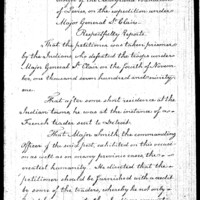 of Levies, on the expedition under
Major General St. Clair.
Respectfully Reports.
That the petitioner was taken prisoner
by the Indians, who defeated the troops under
Major General St. Clair on the fourth of Novem-
ber, one thousand seven hundred and ninety
one.
That after some short residence at the
Indian towns, he was at the instance of a
French trader sent to Detroit.
That Major Smith, the commanding
Officer of the said post, exhibited on this occasi-
on as well as on many previous ones, the
greatest humanity. He directed that the
petitioner should be furnished with
by some of the traders, whereby he not only